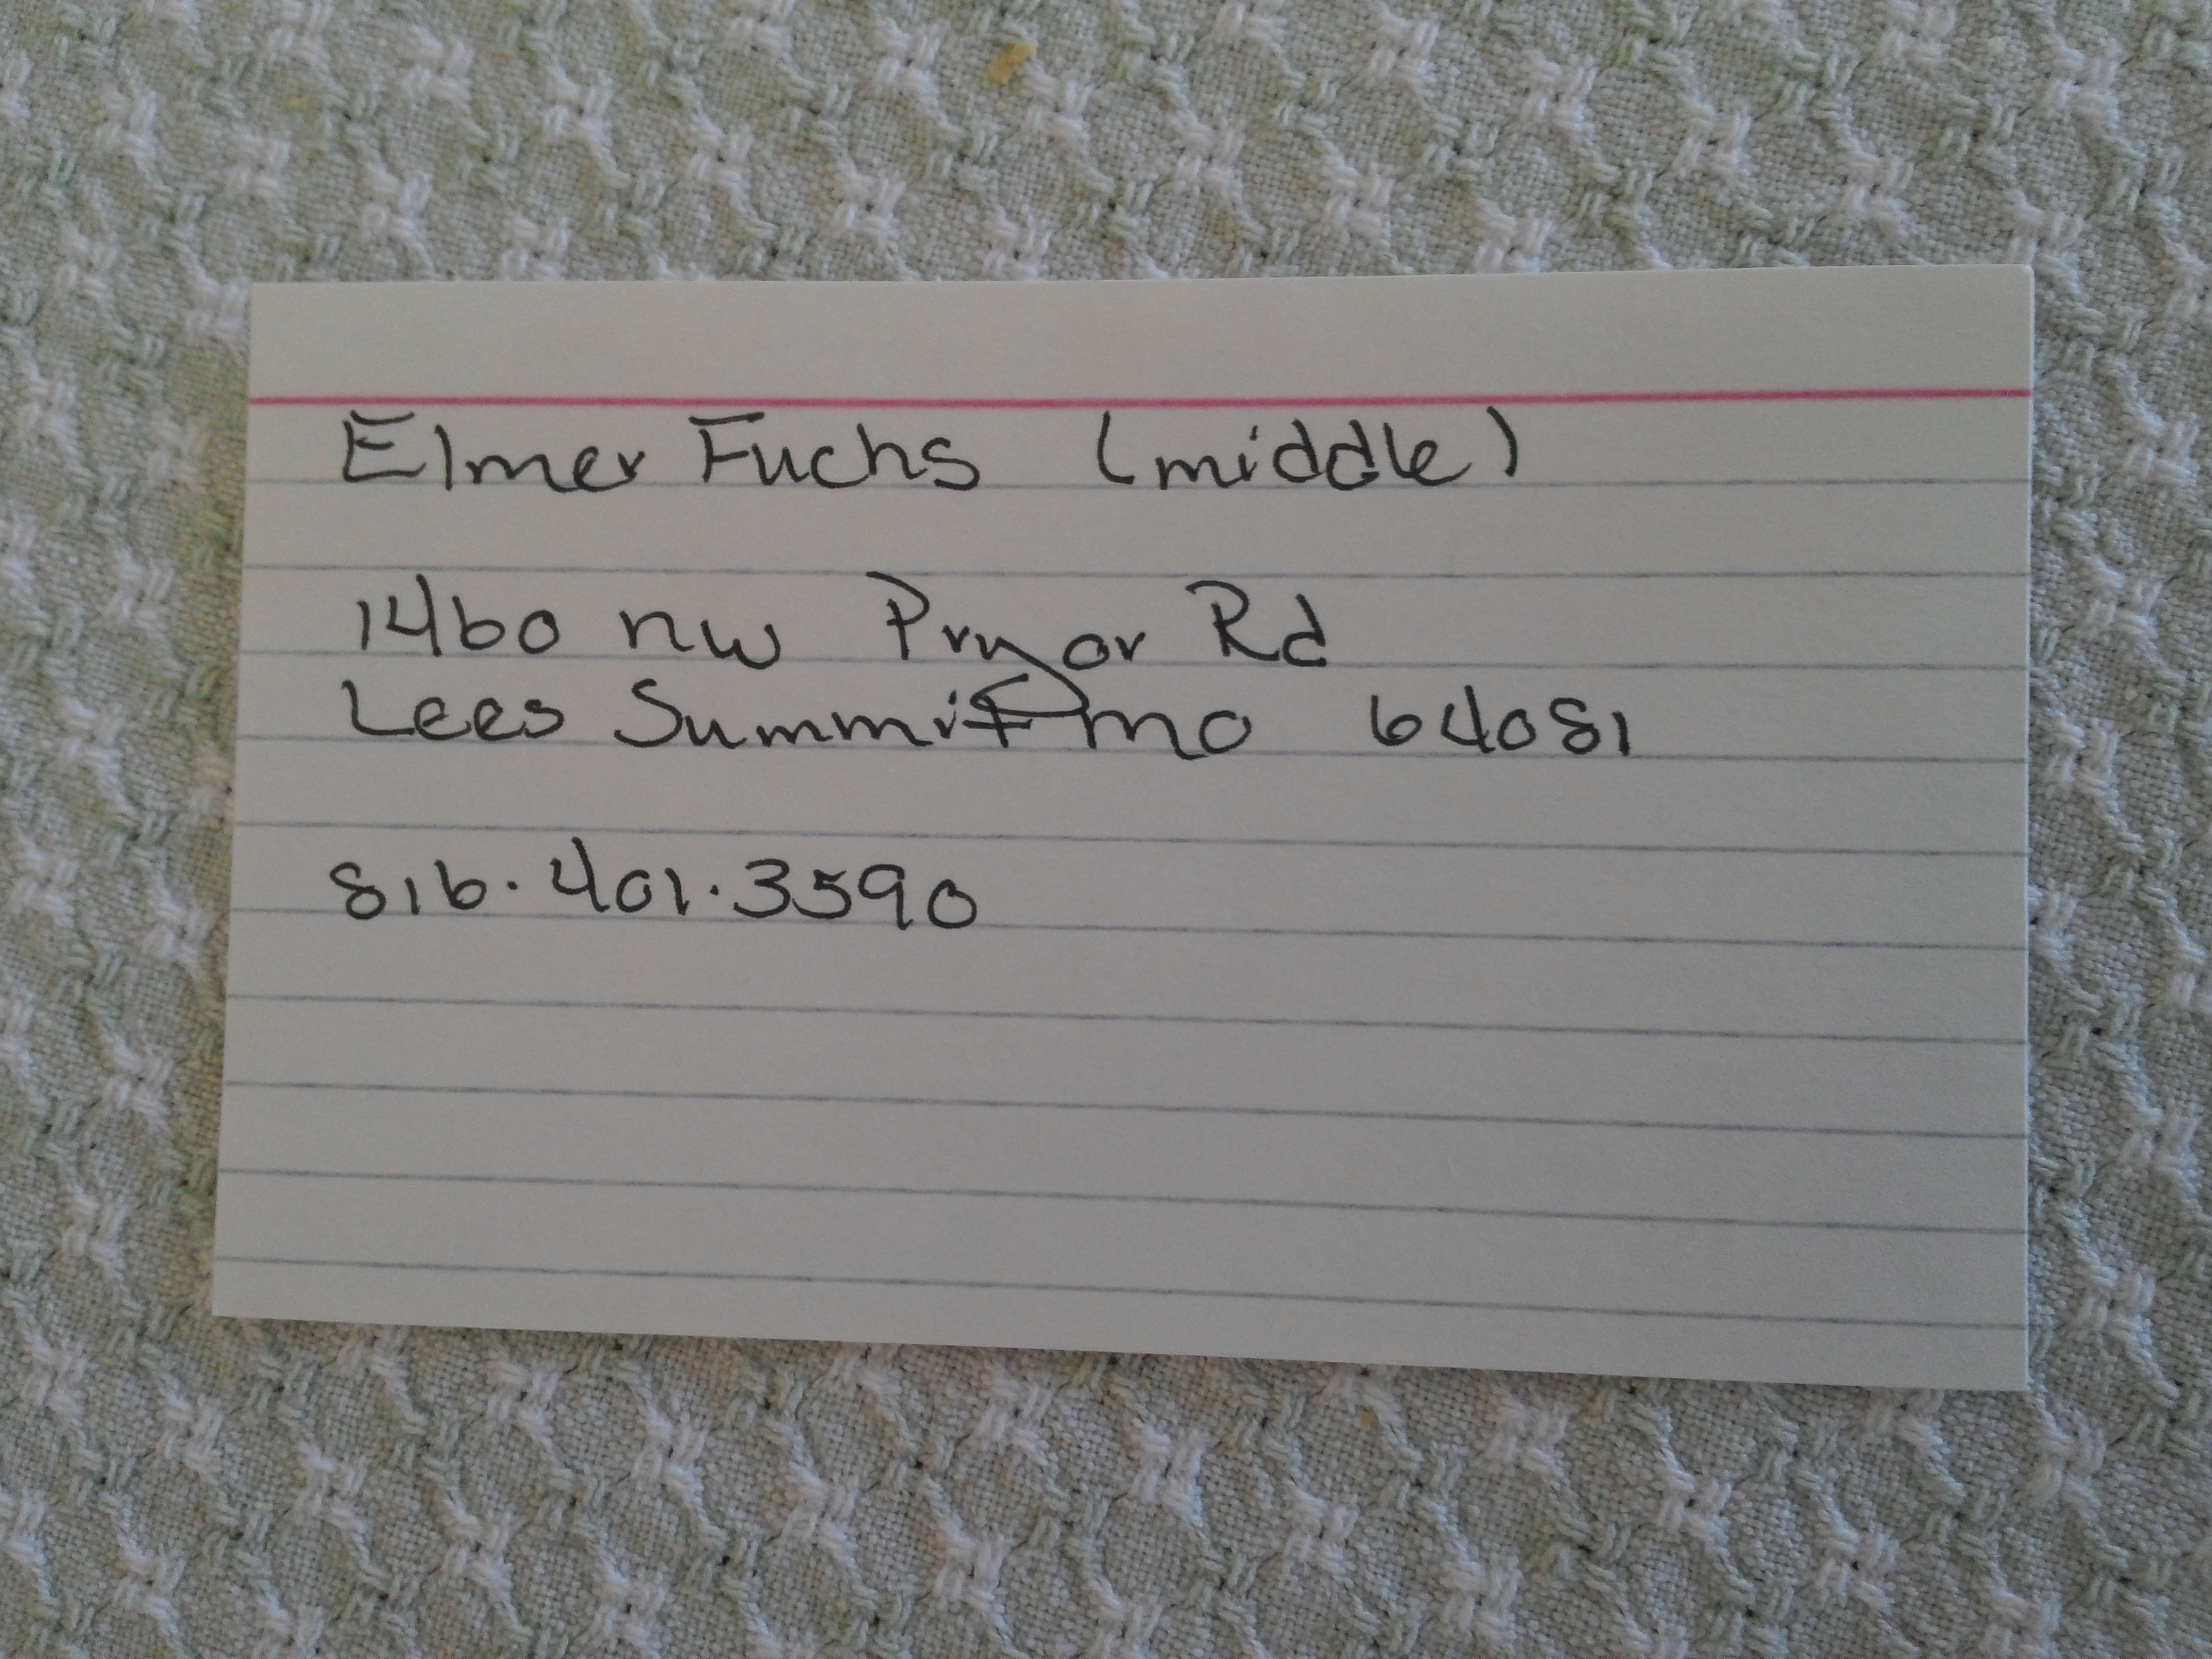 Elmer Fuchs (middle)
1460 nw Pryor Rd
Lees Summit mo 64081
816.401.3590